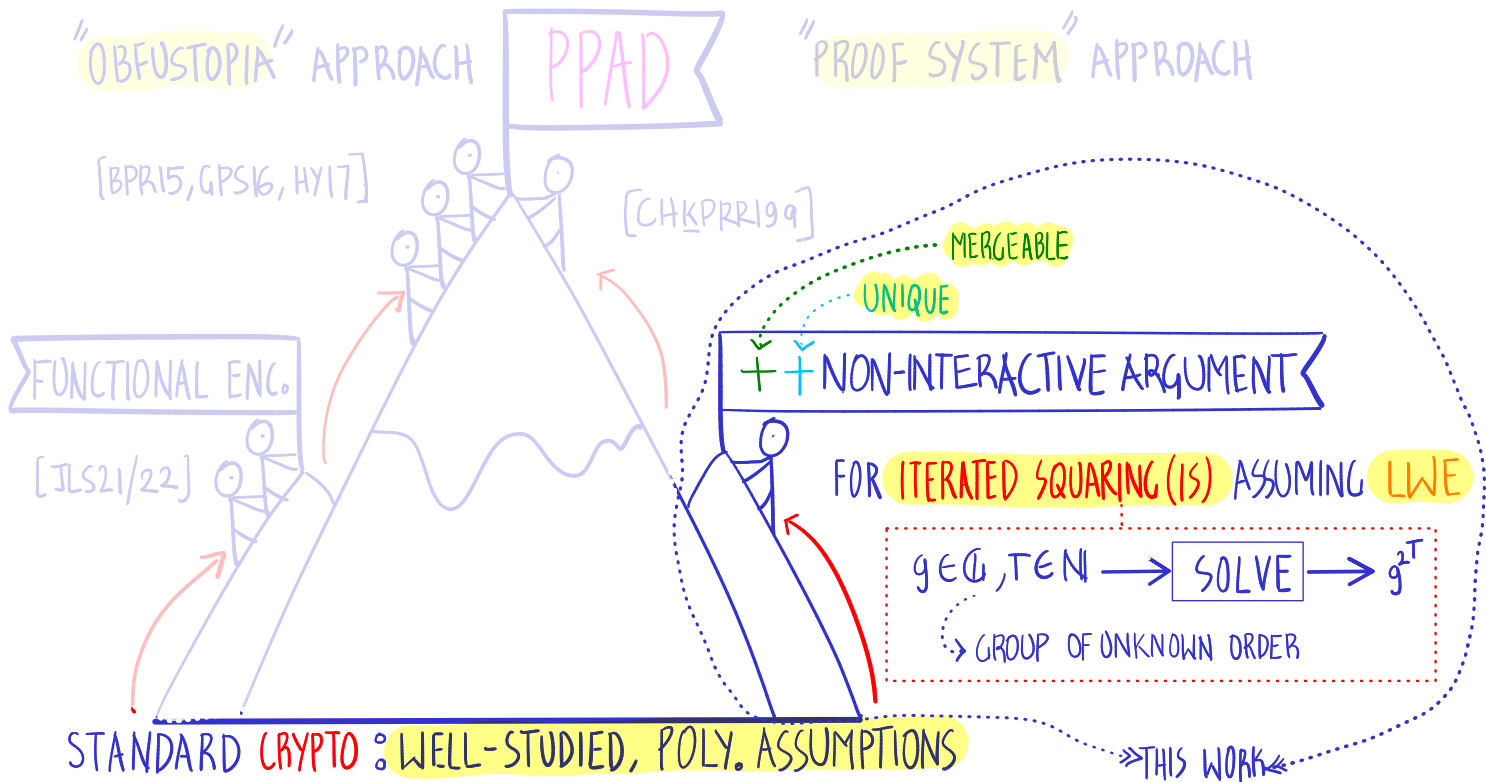 "OBFUSTOPIA" APPROACH
PPAD
"PROOF SYSTEM" APPROACH
[BPR15, GPS16, HY17]
[CHKPRR19a]
MERGEABLE
UNIQUE
FUNCTIONAL ENC.
++ NON-INTERACTIVE ARGUMENT
[JLS21/22]
FOR ITERATED SQUARING (IS) ASSUMING LWE
g∈𝔾, T∈ℕ → SOLVE → g^2^T
GROUP OF UNKNOWN ORDER
STANDARD CRYPTO : WELL-STUDIED, POLY. ASSUMPTIONS
THIS WORK